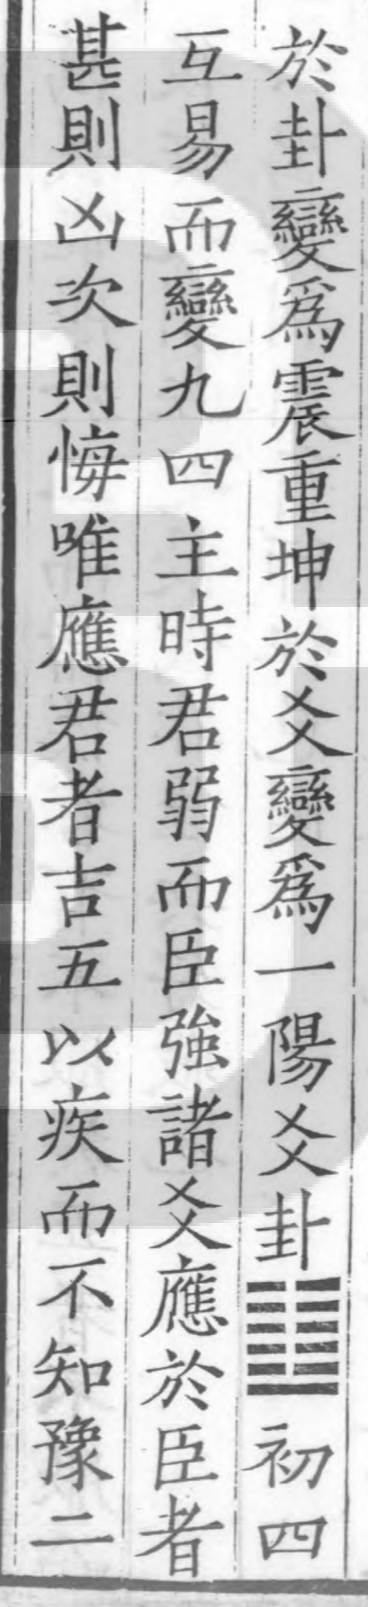 於卦變爲震重坤於爻變爲一陽爻卦䷗初四
互易而變九四主時君弱而臣強諸爻應於臣者
甚則凶次則悔唯應君者吉五以疾而不知豫二